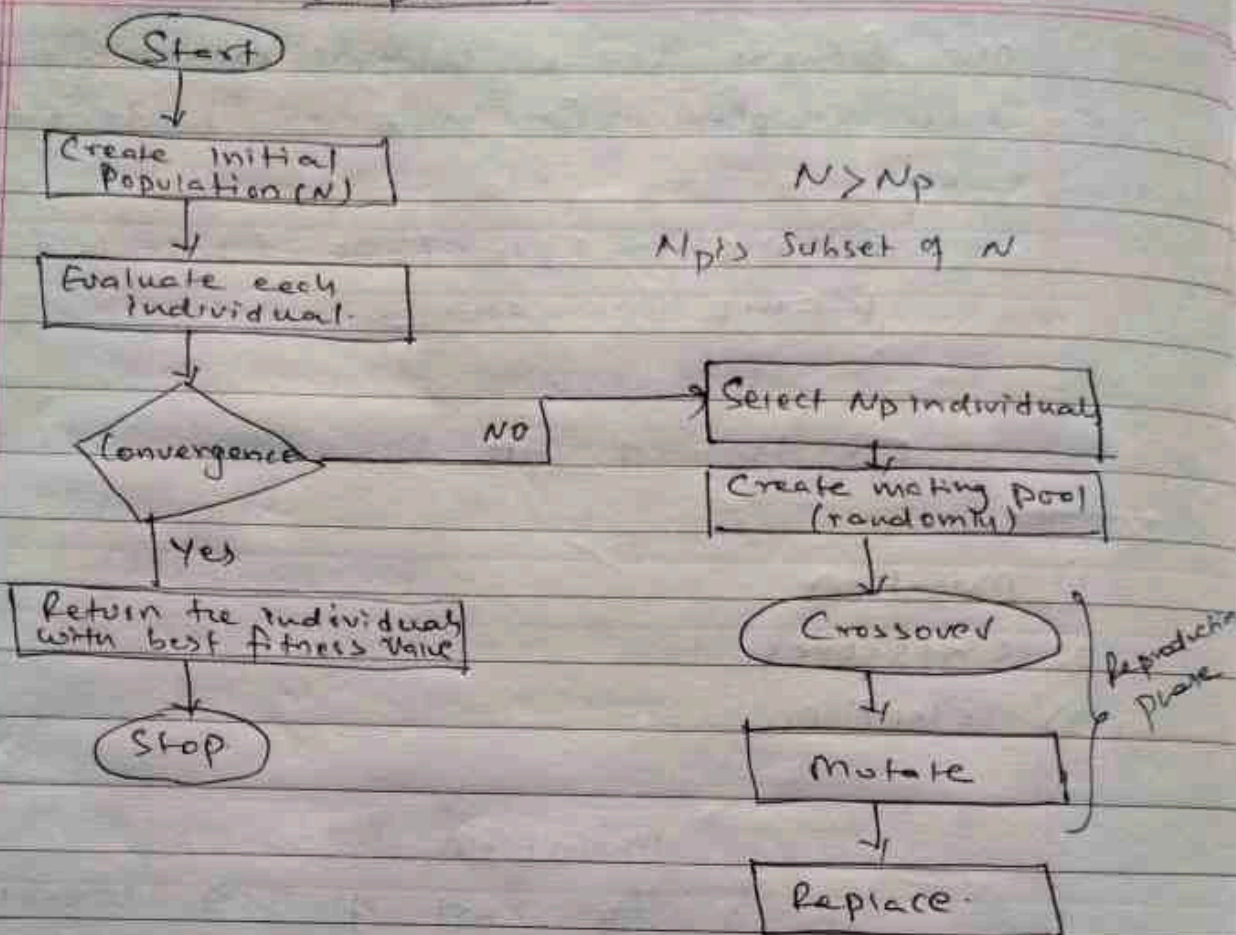 Start
Create Initial
Population (N)
Evaluate each
individual.
Convergence
Yes
Return the individuals
with best fitness value
Stop
N > Np
Np is Subset of N
NO
Select Np individual
Create mating pool
(randomly)
Crossover
Mutate
Reproduction
phase
Replace.